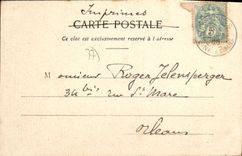 Imprimés
CARTE POSTALE
Ce côté est exclusivement réservé à l'adresse
Monsieur Roger Jelensperger
34 bis rue St Marc
Orléans